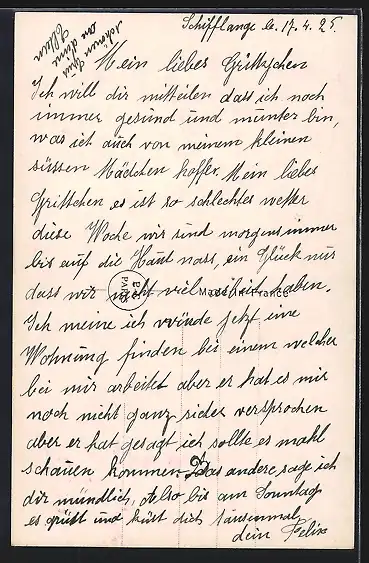 Schifflange le. 17.4.25.
schönen Gruss
an deine
Eltern
Mein liebes Grittchen
Ich will dir mitteilen dass ich noch
immer gesund und munter bin,
was ich auch von meinem kleinen
süssen Mädchen hoffe. Mein liebes
Grittschen es ist so schlechtes wetter
diese Woche wir sind morgens immer
bis auf die Haut nass, ein Glück nur
dass wir nicht viel zeit haben.
PARIS
Made in France
Ich meine ich würde jetz eine
Wohnung finden bei einem welcher
bei mir arbeitet aber er hat es mir
noch nicht ganz sider versprochen
aber er hat gesagt ich sollte es mahl
schauen kommen. Das andere sage ich
dir mündlich, Also bis am Sonntag
es grüßt und küst dich tausenmal
dein Felix